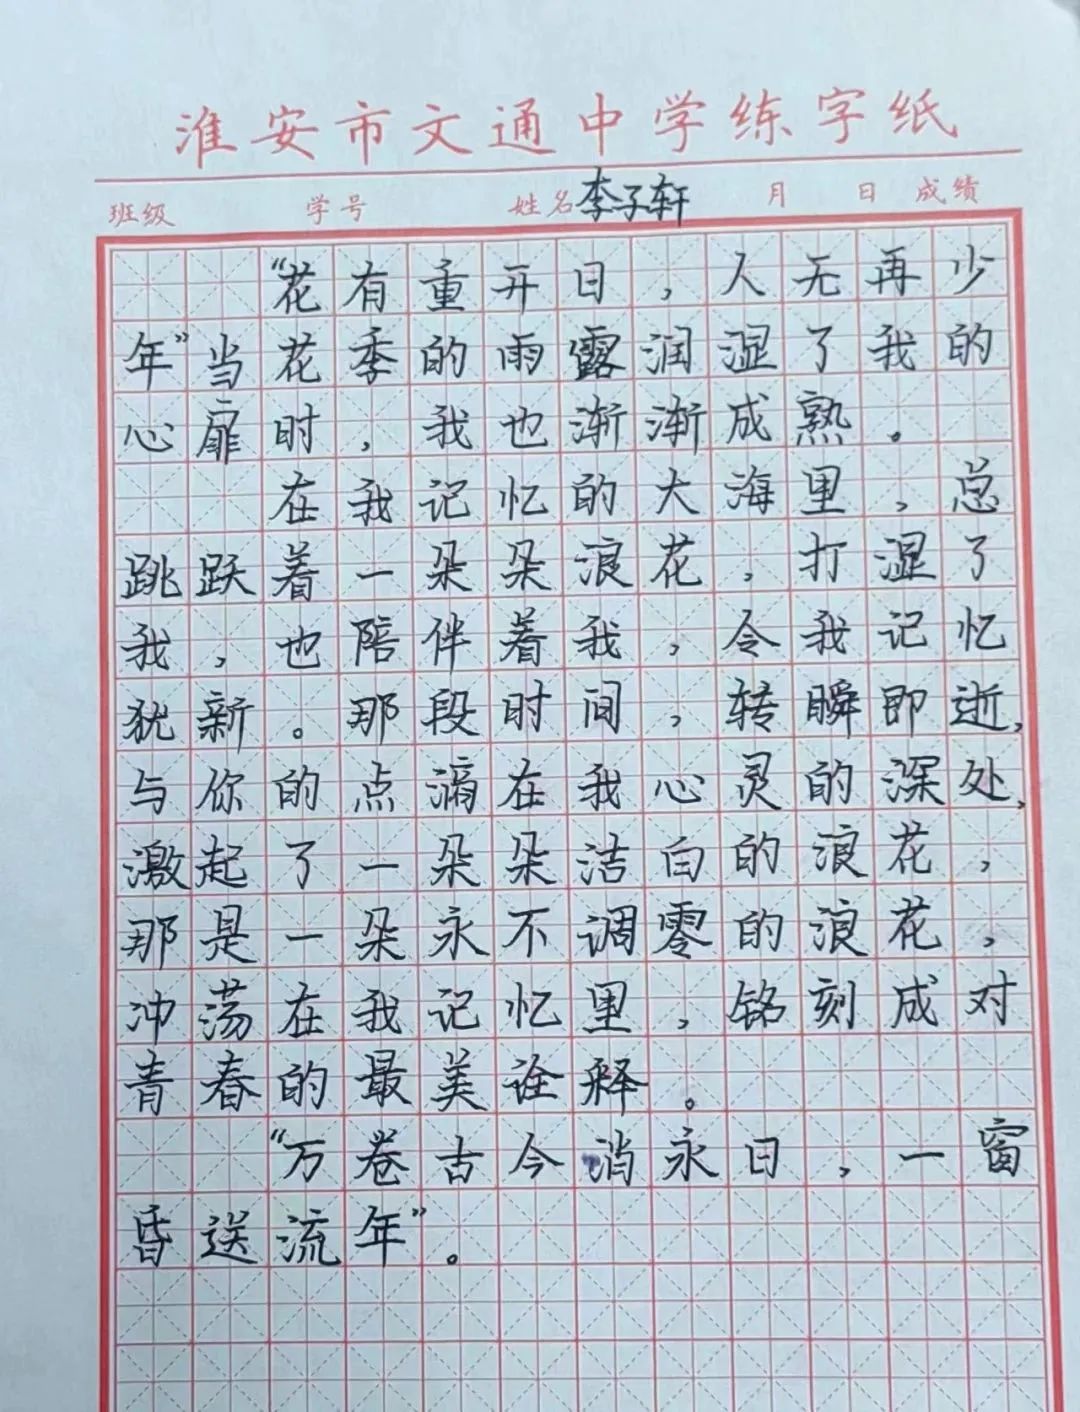 淮安市文通中学练字纸
班级 学号 姓名李子轩 月 日 成绩
“花有重开日，人无再少
年”当花季的雨露润湿了我的
心扉时，我也渐渐成熟。
在我记忆的大海里，总
跳跃着一朵朵浪花，打湿了
我，也陪伴着我，令我记忆
犹新。那段时间，转瞬即逝，
与你的点滴在我心灵的深处，
激起了一朵朵洁白的浪花，
那是一朵永不调零的浪花，
冲荡在我记忆里，铭刻成对
青春的最美诠释。
“万卷古今消永日，一窗
昏送流年”。